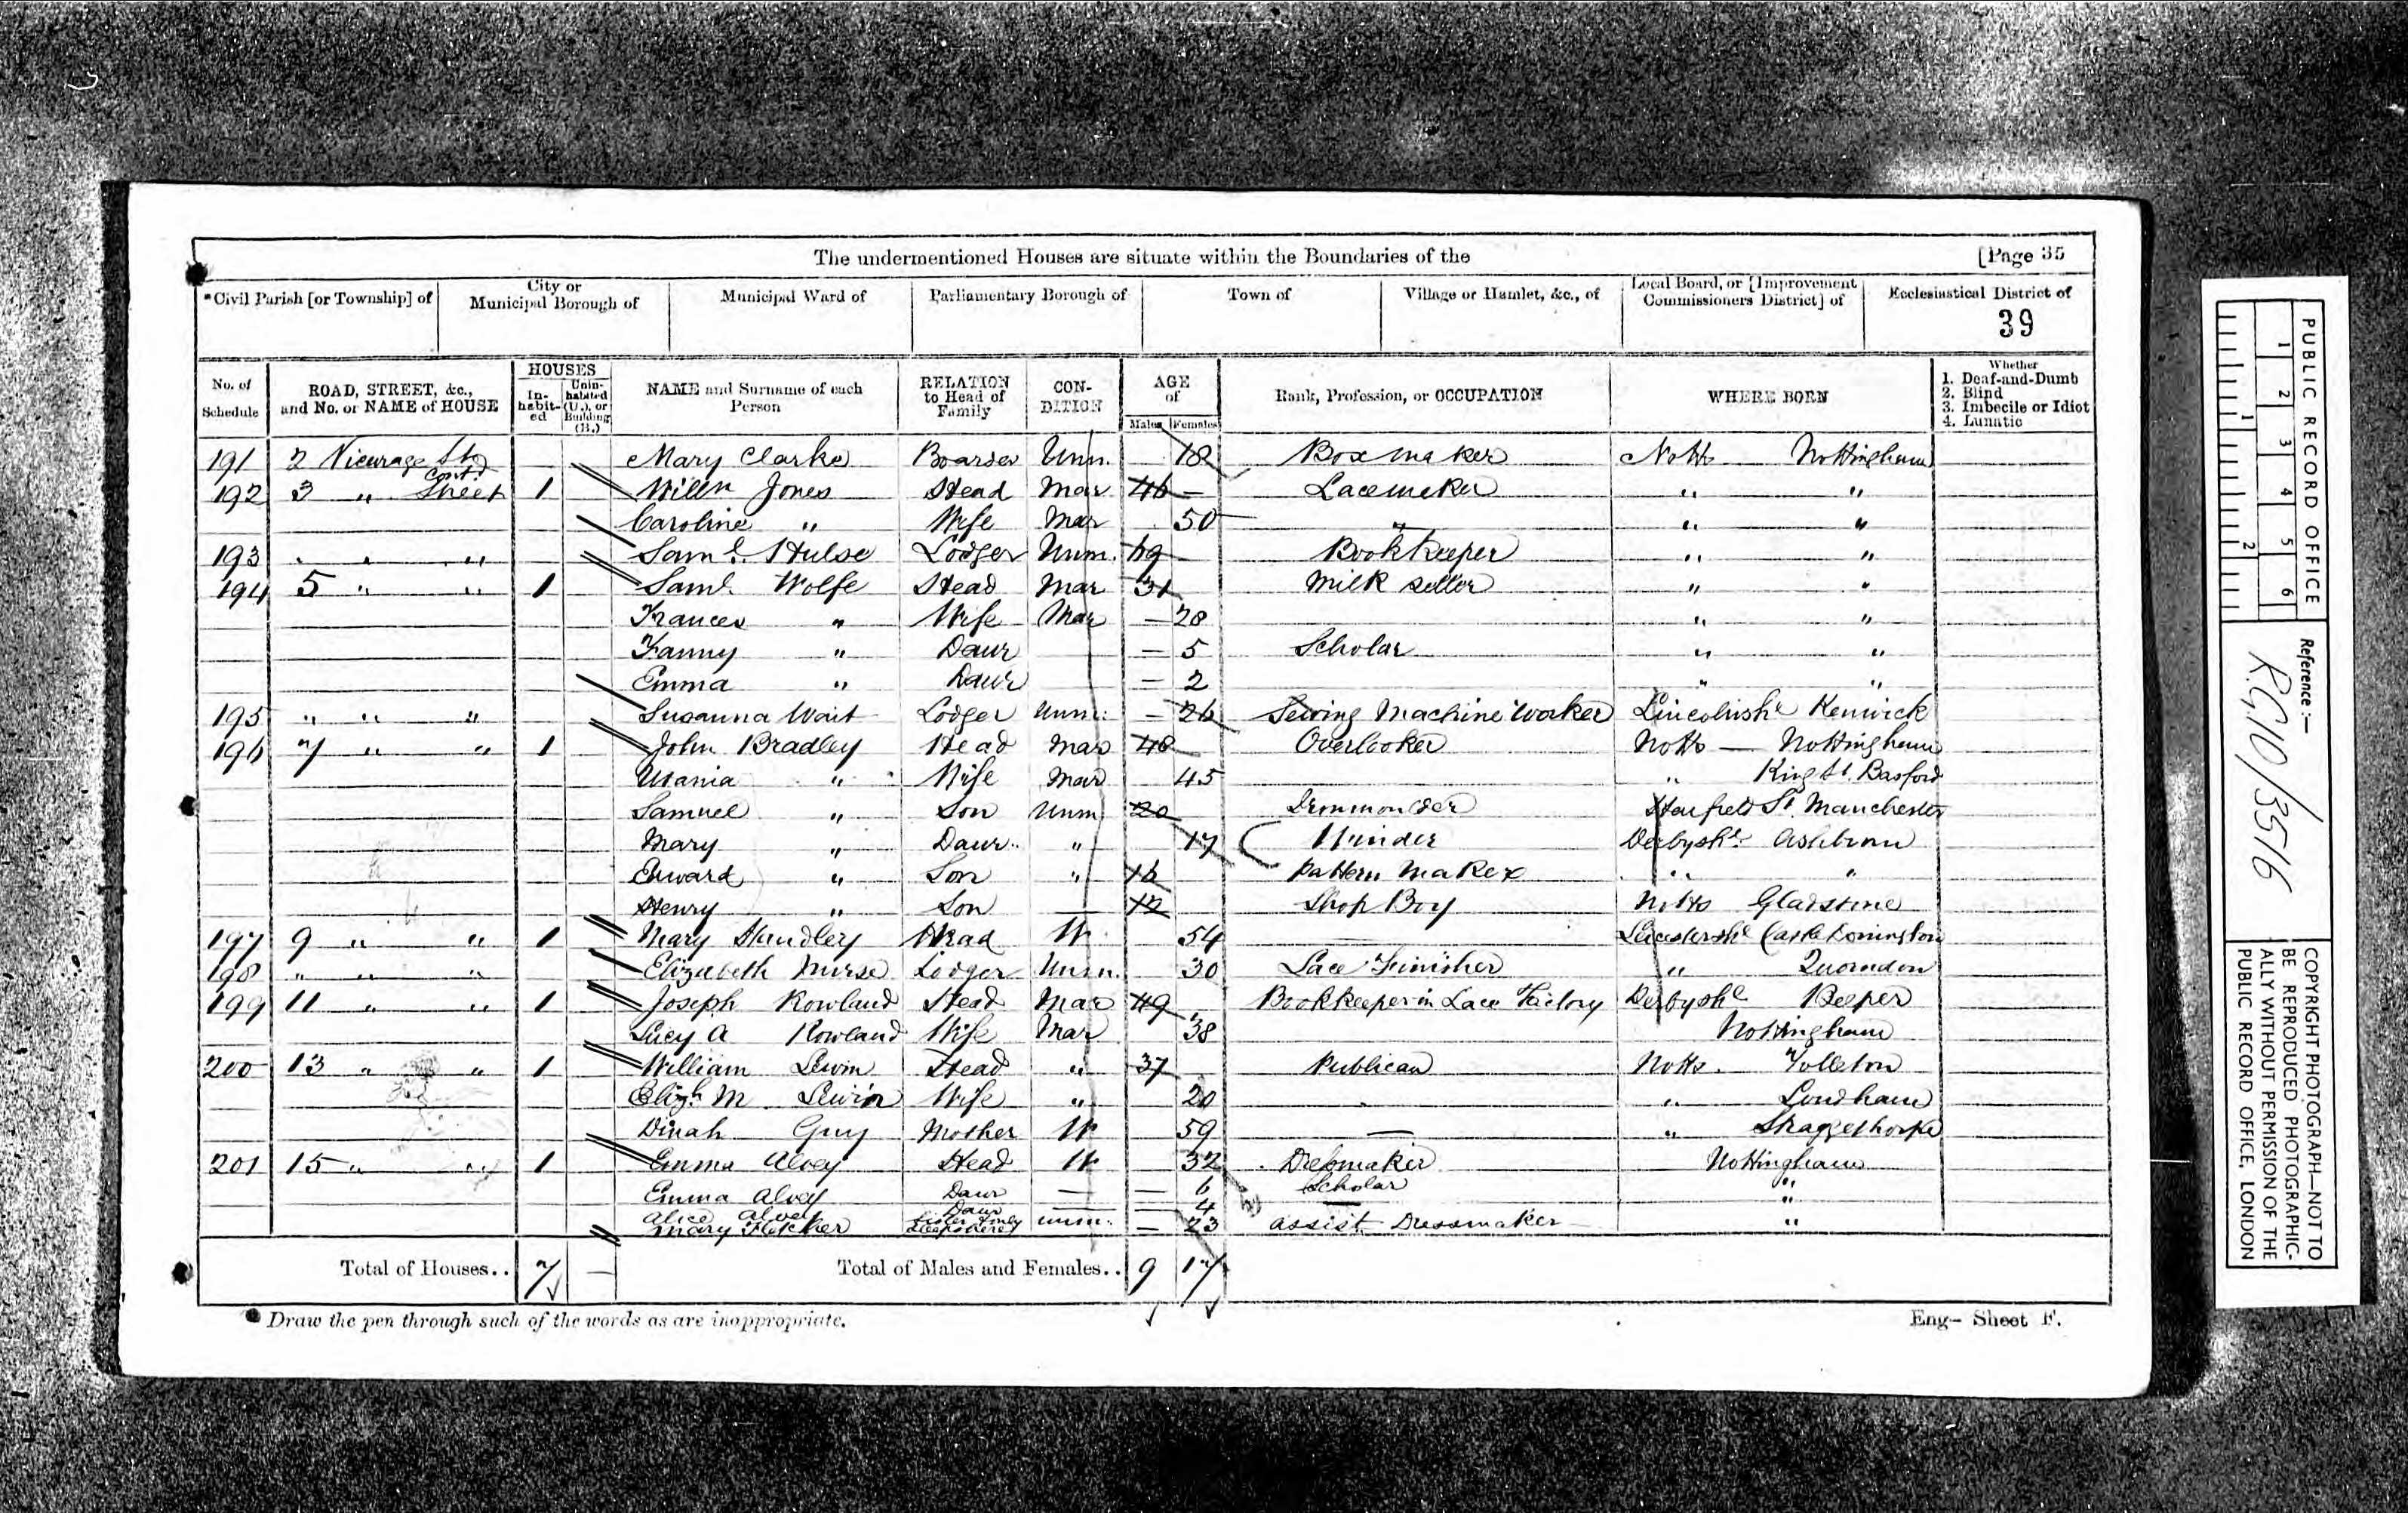 The undermentioned Houses are situate within the Boundaries of the [Page 35
*Civil Parish [or Township] of
City or Municipal Borough of
Municipal Ward of
Parliamentary Borough of
Town of
Village or Hamlet, &c., of
Local Board, or [Improvement Commissioners District] of
Ecclesiastical District of
39
No. of Schedule
ROAD, STREET, &c., and No. or NAME of HOUSE
HOUSES
In-habit-ed
Unin-habited (U.), or Building (B.)
NAME and Surname of each Person
RELATION to Head of Family
CON-DITION
AGE of
Males Females
Rank, Profession, or OCCUPATION
WHERE BORN
Whether
1. Deaf-and-Dumb
2. Blind
3. Imbecile or Idiot
4. Lunatic
191 2 Vicurage St Contd Mary Clarke Boarder Unm. 18 Boxmaker Notts Nottingham
192 3 " Street 1 Willm Jones Head Mar 46 – Lacemaker " "
Caroline " Wife Mar 50 " " "
193 " " " Saml. Hulse Lodger Unm. 69 Bookkeeper " "
194 5 " " 1 Saml. Wolfe Head Mar 31 Milk seller " "
Frances " Wife Mar – 28 " "
Fanny " Daur – 5 Scholar " "
Emma " Daur – 2 " "
195 " " " Susanna Wait Lodger Unm. – 26 Sewing Machine Worker Lincolnshe Kenwick
196 7 " " 1 John Bradley Head Mar 48 Overlooker Notts — Nottingham
Urania " Wife Mar 45 " King St. Basford
Samuel " Son Unm 20 St. Manchester
Mary " Daur " 17 Winder Derbyshe. Ashbourn
Edward " Son " 16 Pattern Maker " "
Henry " Son 12 Shop Boy Notts Gladstone
197 9 " " 1 Mary Handley Head W 54 — Leicestershe Castle Donington
198 " " " Elizabeth Nurse Lodger Unm. 30 Lace Finisher " Quorndon
199 11 " " 1 Joseph Rowland Head Mar 49 Bookkeeper in Lace Factory Derbyshe Belper
Lucy A Rowland Wife Mar 38 Nottingham
200 13 " " 1 William Lewin Head " 37 Publican Notts. Tolleton
Elizh M Lewin Wife " 20 " Lowdham
Dinah Guy Mother W 59 — "
201 15 " " 1 Emma Alvey Head W 32 Dressmaker Nottingham
Emma Alvey Daur — — 6 Scholar "
Alice Alvey Daur — — 4 — "
Mary Fletcher Sister Only Sleeps here Unm. — 23 assist Dressmaker "
Total of Houses.. 7 — Total of Males and Females.. 9 17
* Draw the pen through such of the words as are inappropriate.
Eng– Sheet F.
PUBLIC RECORD OFFICE
1 2 3 4 5 6
1 2
Reference :—
R.G.10/3516
COPYRIGHT PHOTOGRAPH—NOT TO BE REPRODUCED PHOTOGRAPHIC-ALLY WITHOUT PERMISSION OF THE PUBLIC RECORD OFFICE, LONDON